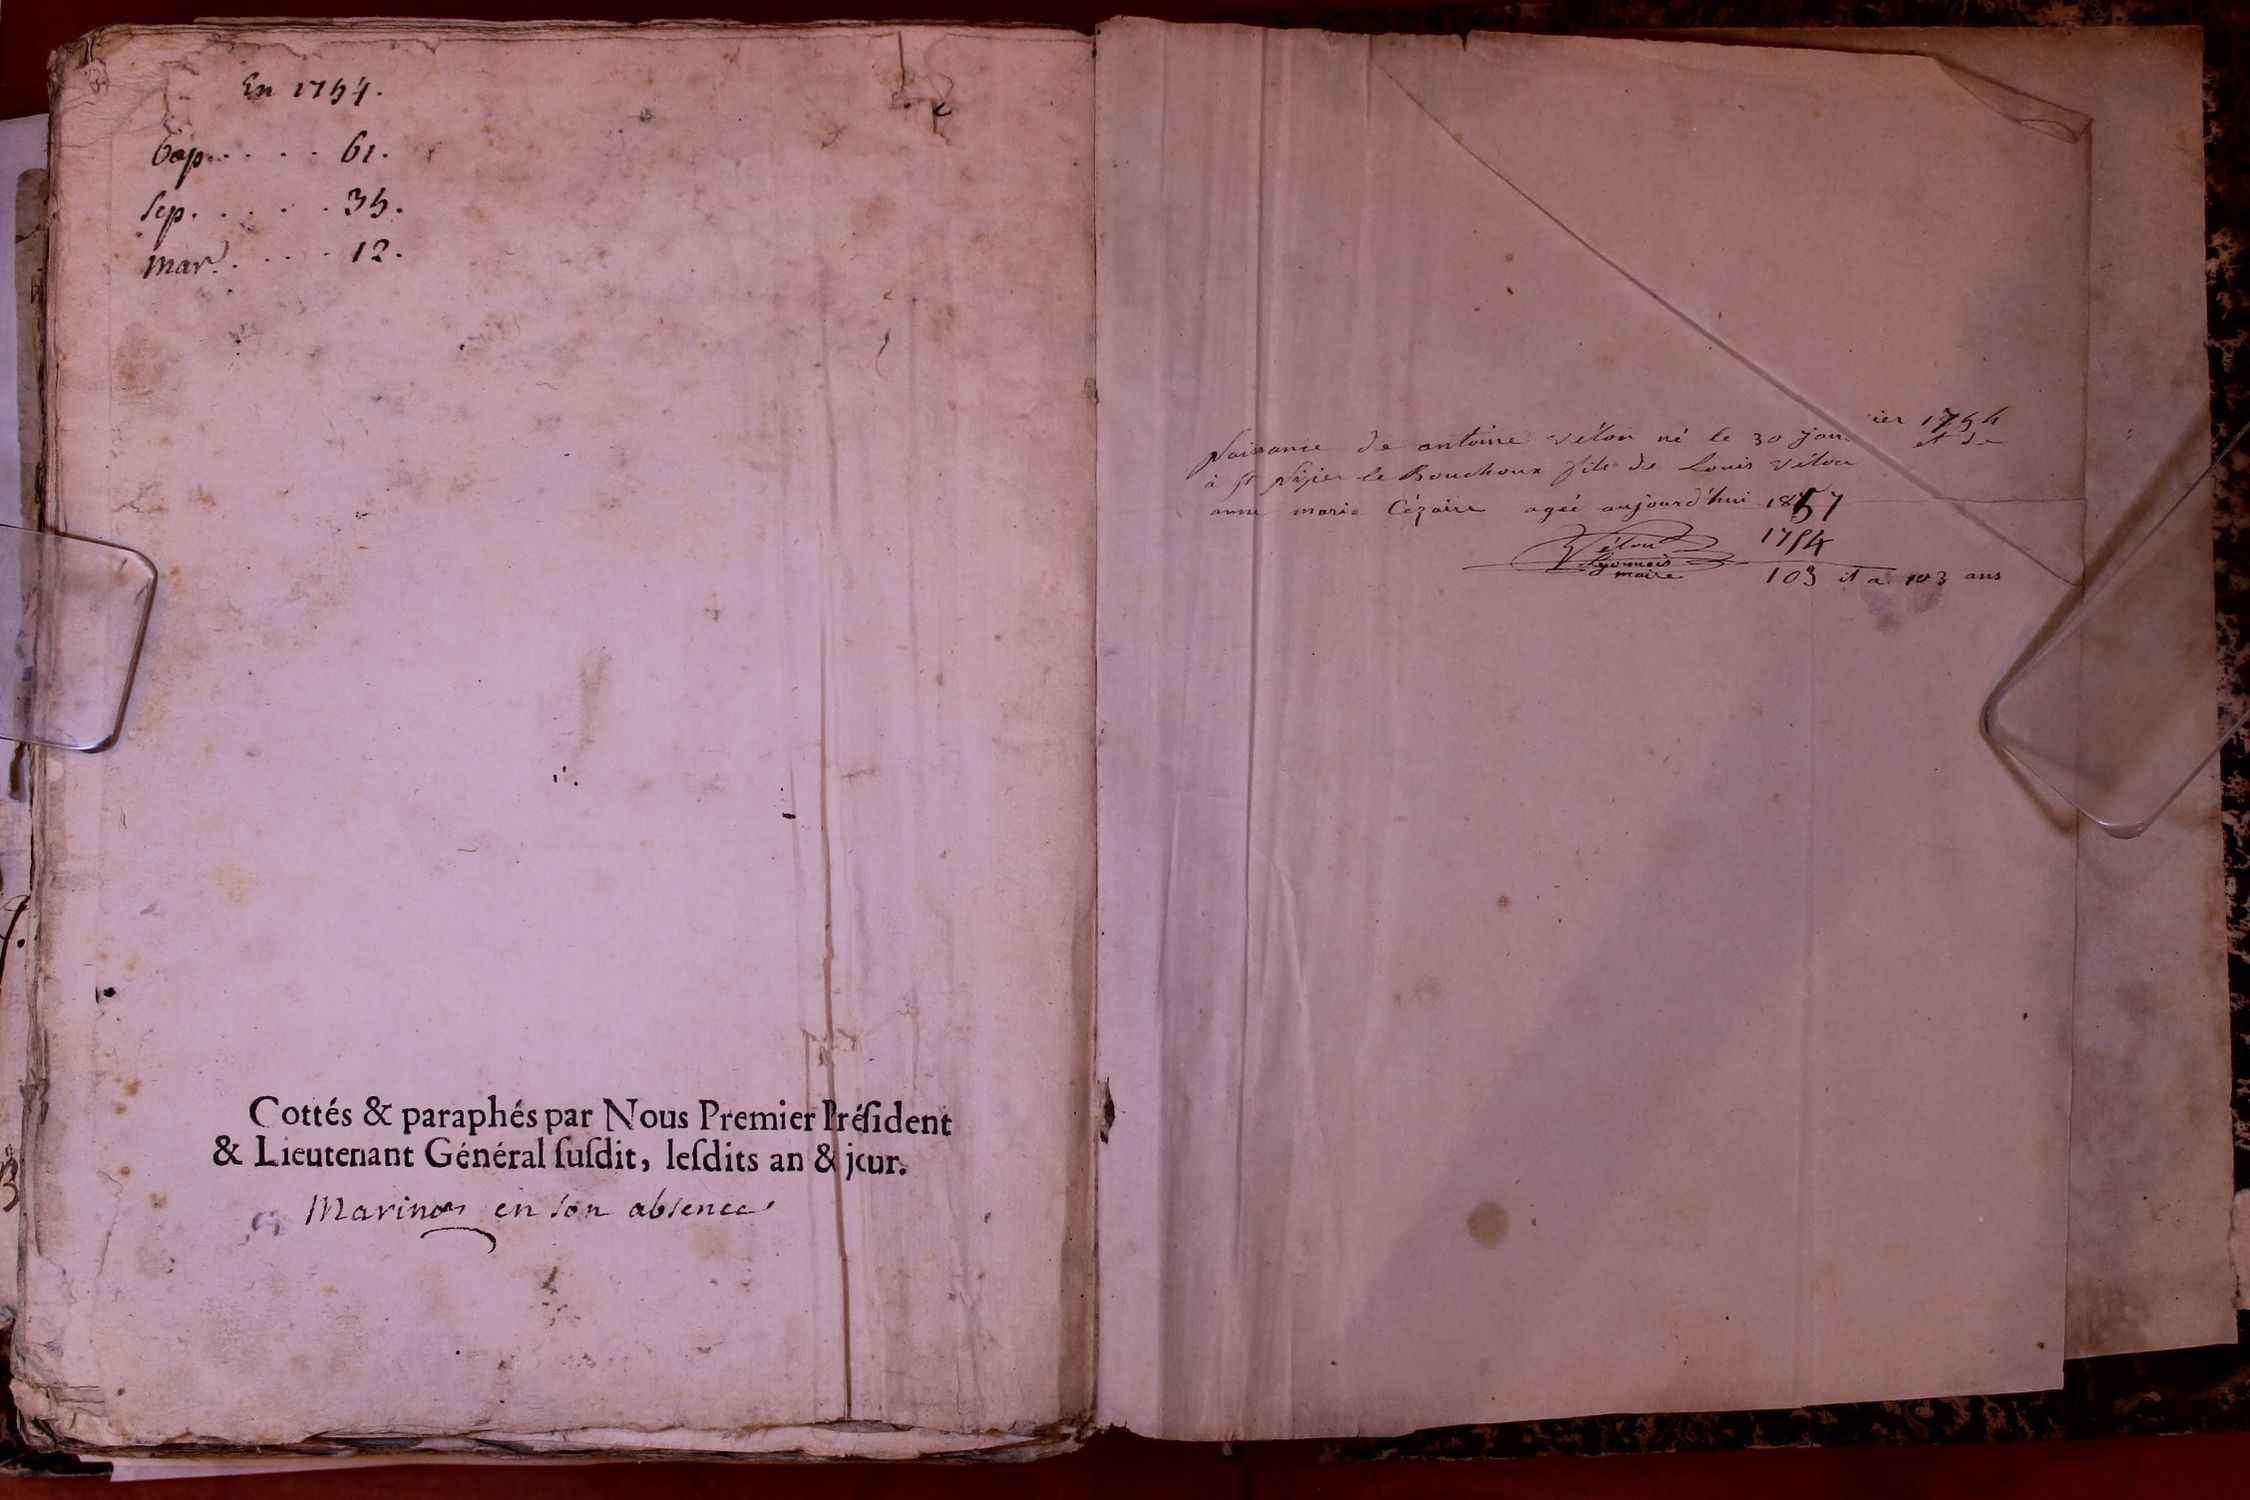 En 1754.
bap. . . . . 61.
sep. . . . . 35.
mar. . . . . 12.
Cottés & paraphés par Nous Premier Préſident
& Lieutenant Général ſuſdit, leſdits an & jour.
en son absence
Naissance de antoine Vélon né le 30 janvier 1754
à St Nizier le Bouchoux fils de Louis Vélon et de
anne marie Cézaire agée aujourd'hui 1857
1754
Vélon
Lyonnais
maire
103 it a 103 ans